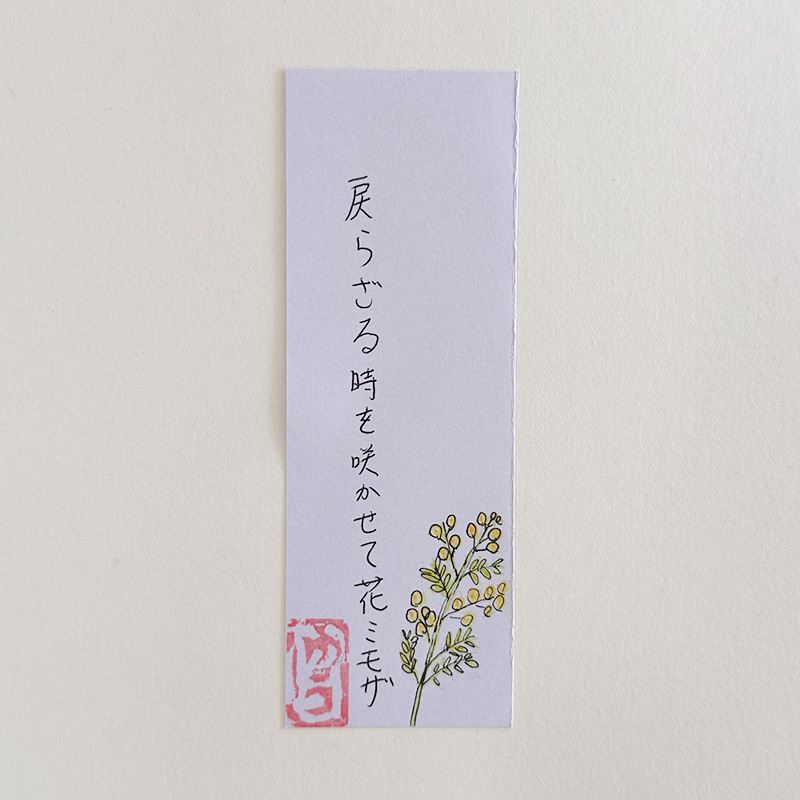 戻らざる時を咲かせて花ミモザ